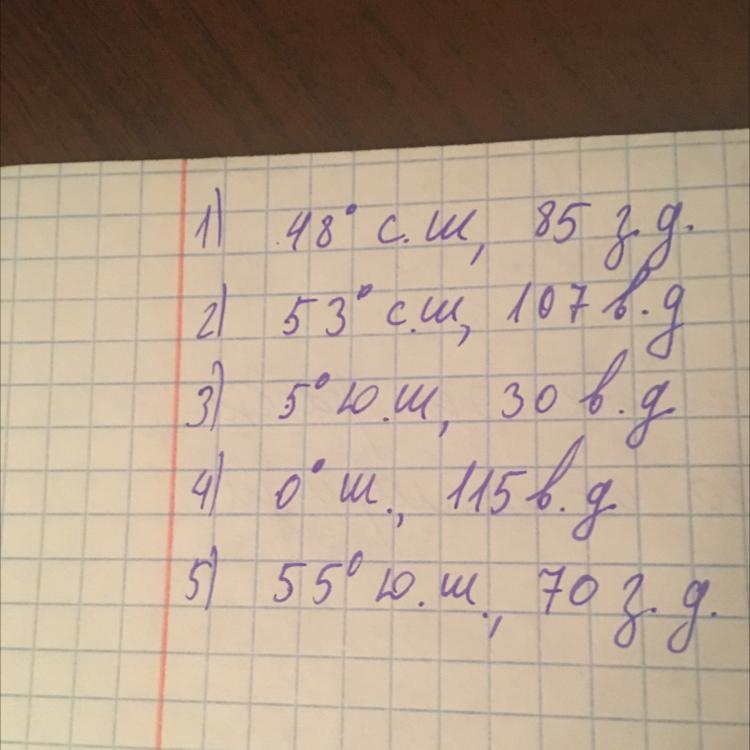 1) 48° с.ш, 85 з.д.
2) 53° с.ш, 107 в.д
3) 5° ю.ш, 30 в.д
4) 0° ш., 115 в.д
5) 55° ю.ш., 70 з.д.